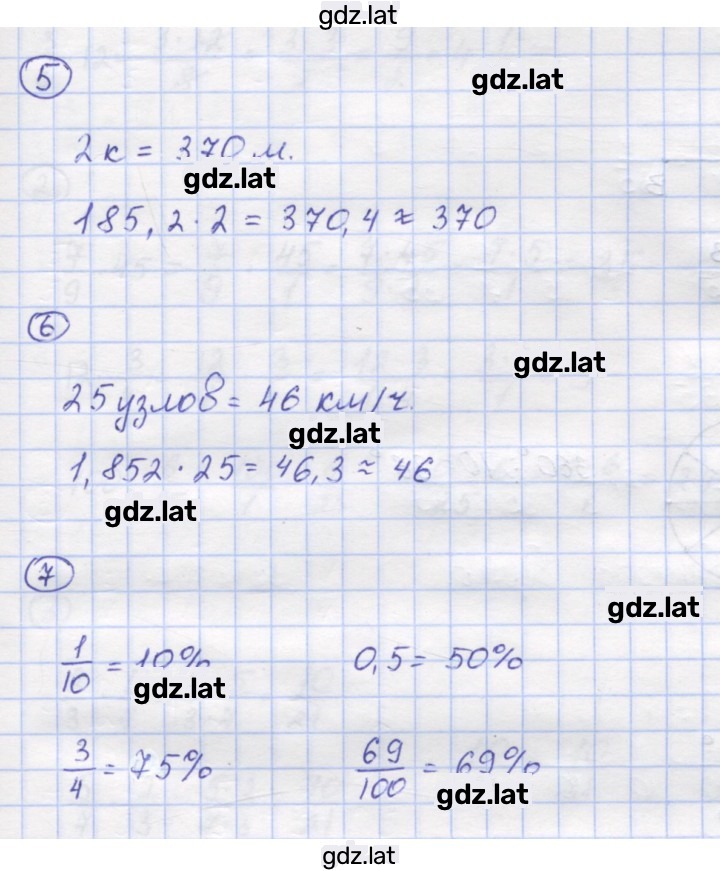 gdz.lat
5
gdz.lat
2к = 370 м.
gdz.lat
185,2 · 2 = 370,4 ≈ 370
6
gdz.lat
25 узлов = 46 км/ч.
gdz.lat
1,852 · 25 = 46,3 ≈ 46
gdz.lat
7
gdz.lat
1/10 = 10% 0,5 = 50%
gdz.lat
3/4 = 75% 69/100 = 69%
gdz.lat
gdz.lat